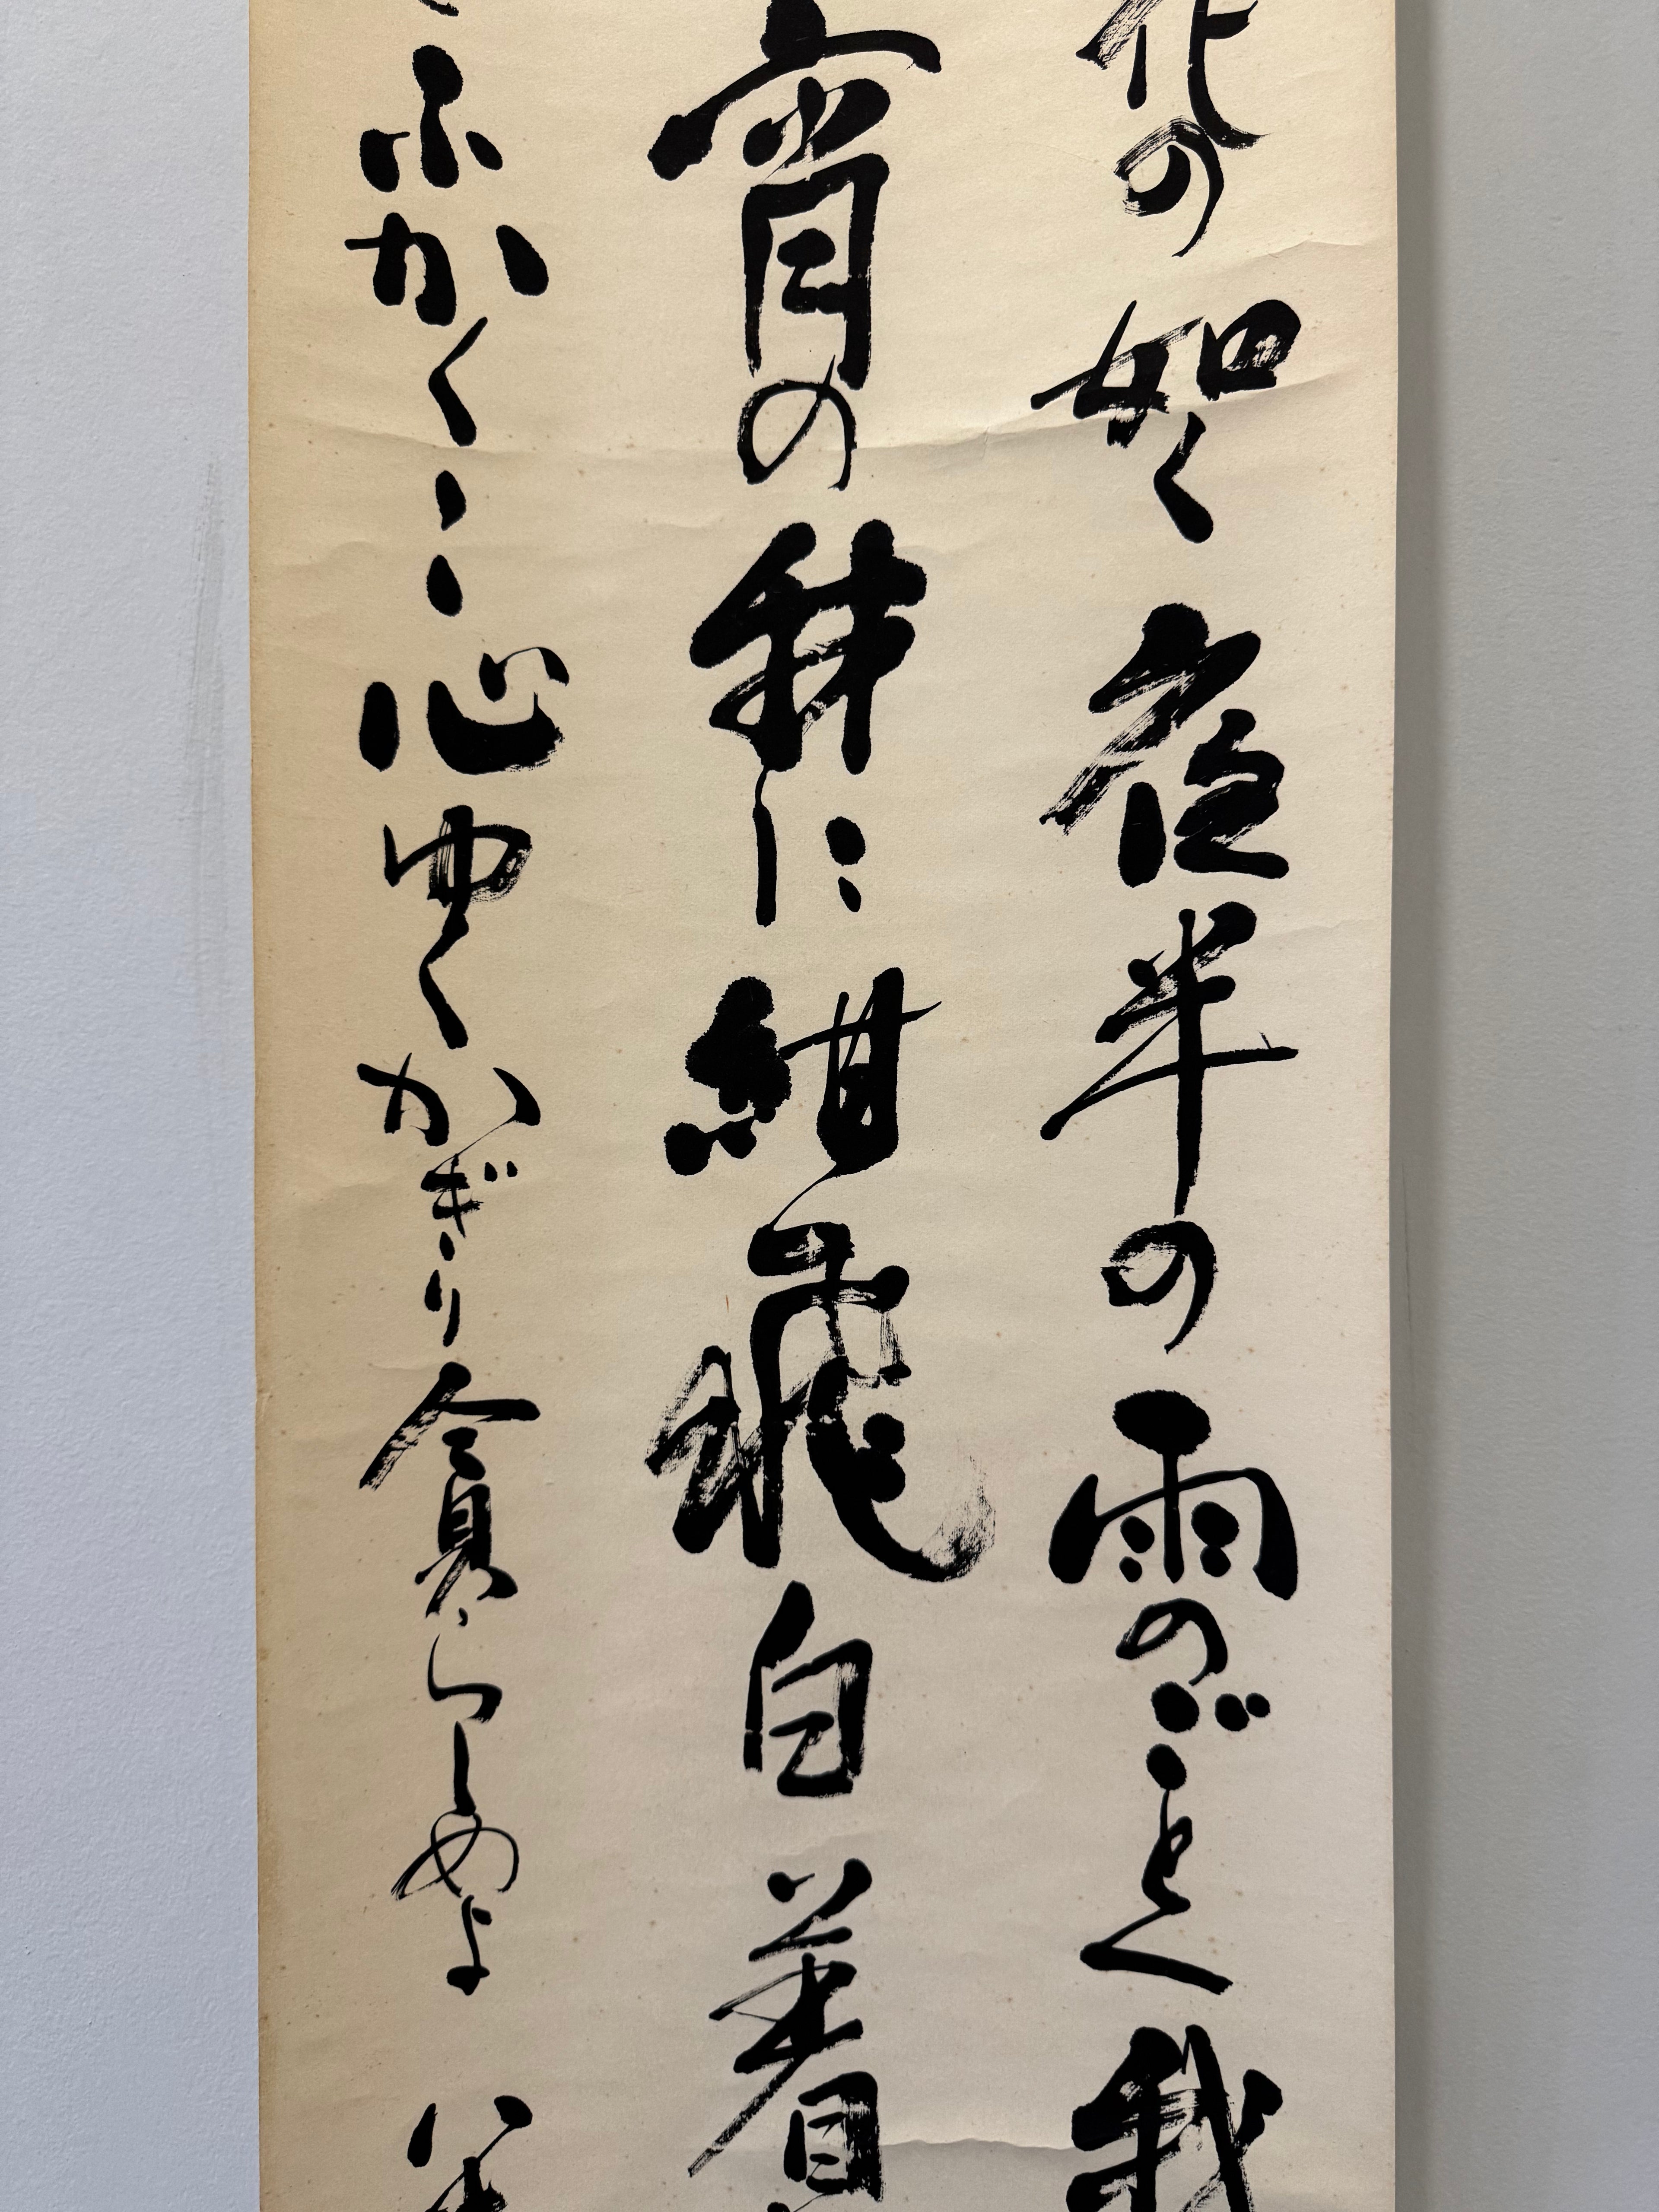 花の如く夜半の雨のごとく我
宵の に紺飛白着
ふかく 心ゆくかぎり貪らしめよ 八